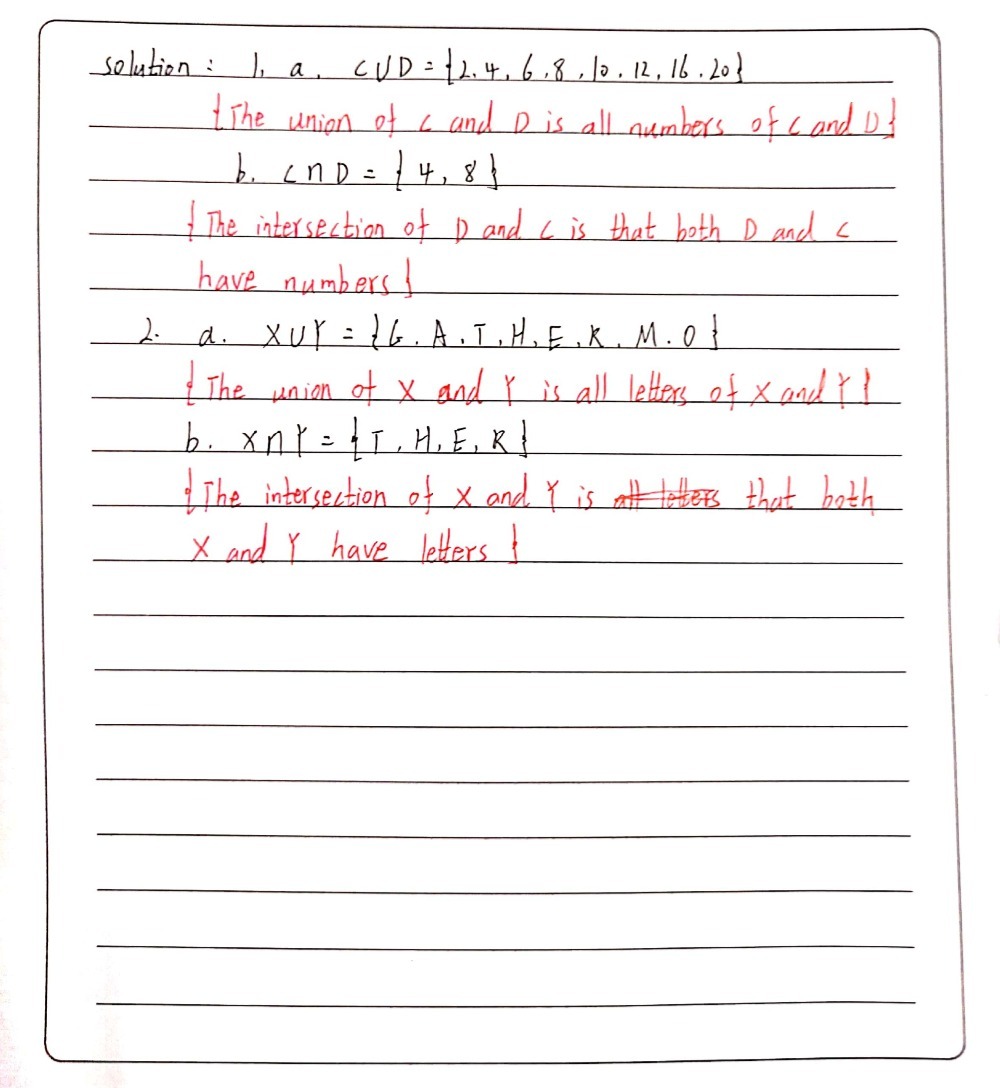 solution : 1. a. C∪D = {2.4.6.8.10.12.16.20}
{The union of C and D is all numbers of C and D}
b. C∩D = {4,8}
{The intersection of D and C is that both D and C
have numbers}
2. a. X∪Y = {G.A.T.H.E.R.M.O}
{The union of X and Y is all letters of X and Y}
b. X∩Y = {T.H.E.R}
{The intersection of X and Y is all letters that both
X and Y have letters}